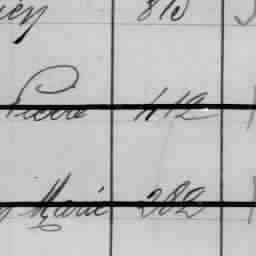 815
Pierre 412
Marie 282